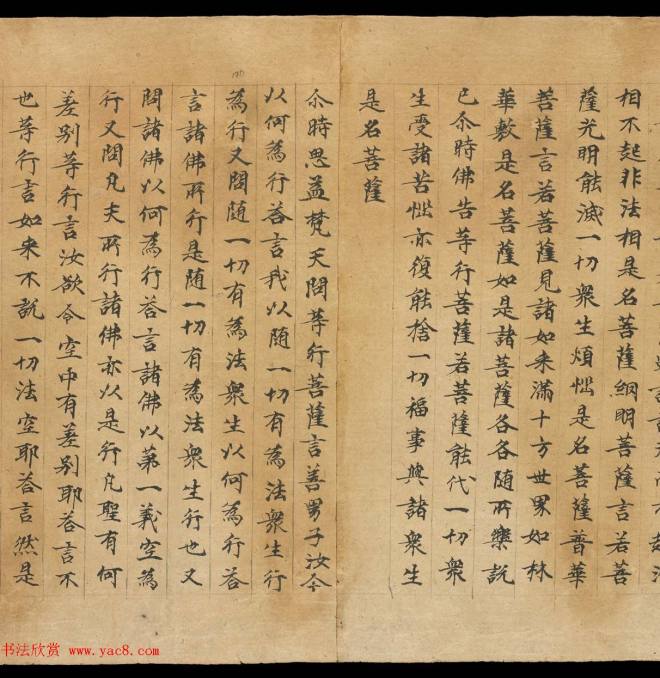 相不起非法相是名菩薩網明菩薩言若菩
薩光明能滅一切衆生煩惱是名菩薩普華
菩薩言若菩薩見諸如来滿十方世界如林
華敷是名菩薩如是諸菩薩各各随所樂説
已尒時佛告䓁行菩薩若菩薩能代一切衆
生受諸苦惱亦復能捨一切福事與諸衆生
是名菩薩
尒時思益梵天問䓁行菩薩言善男子汝今
以何為行荅言我以随一切有為法衆生行
為行又問随一切有為法衆生以何為行荅
言諸佛所行是随一切有為法衆生行也又
問諸佛以何為行荅言諸佛以第一義空為
行又問凡夫所行諸佛亦以是行凡聖有何
差别䓁行言汝欲令空中有差别耶荅言不
也䓁行言如来不説一切法空耶荅言然是
书法欣赏 www.yac8.com